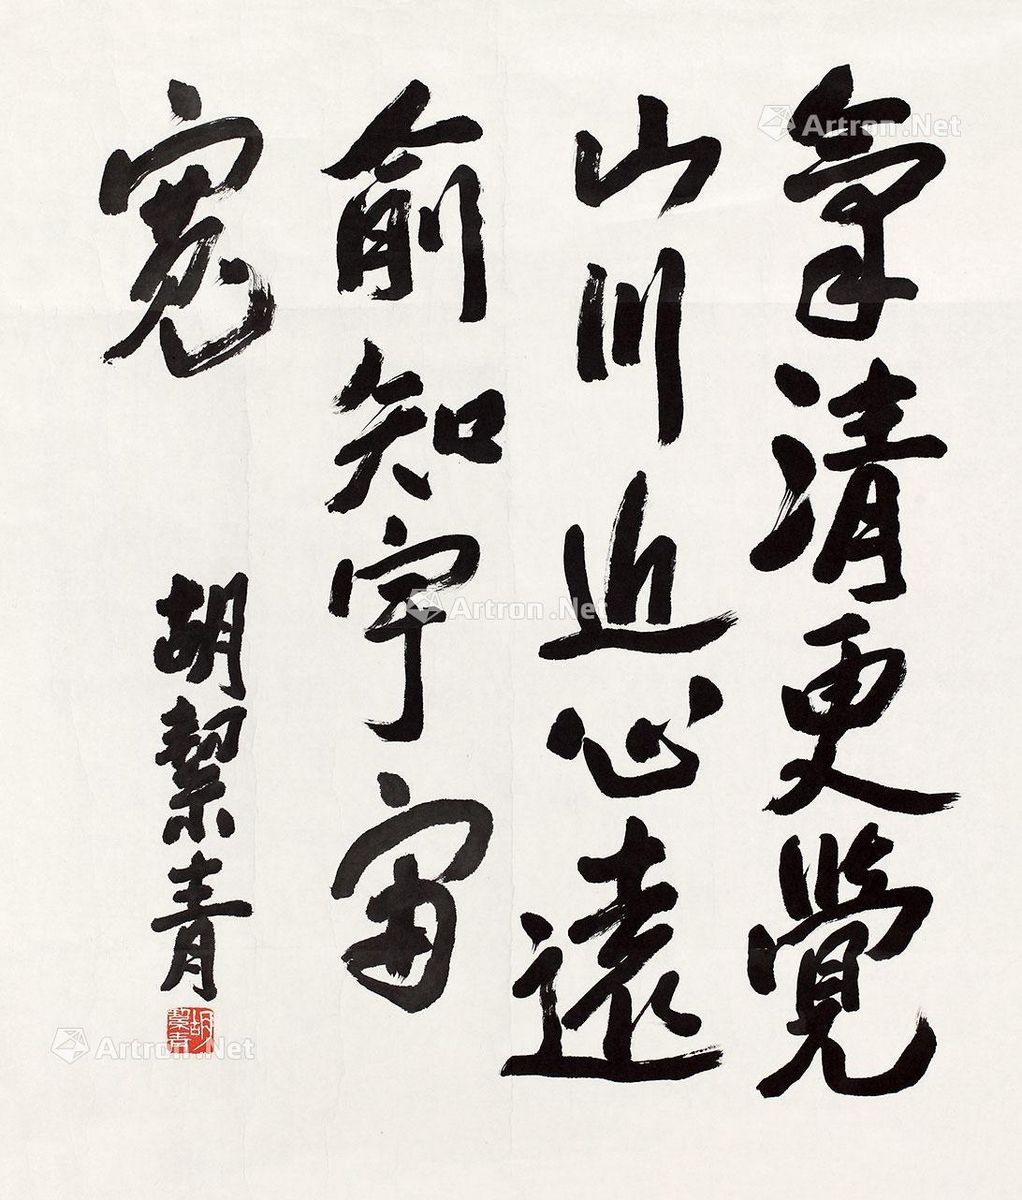 氣清更覺
山川近心遠
俞知宇宙
寬
胡絜青
胡絜青
Artron.Net
Artron.Net
Artron.Net